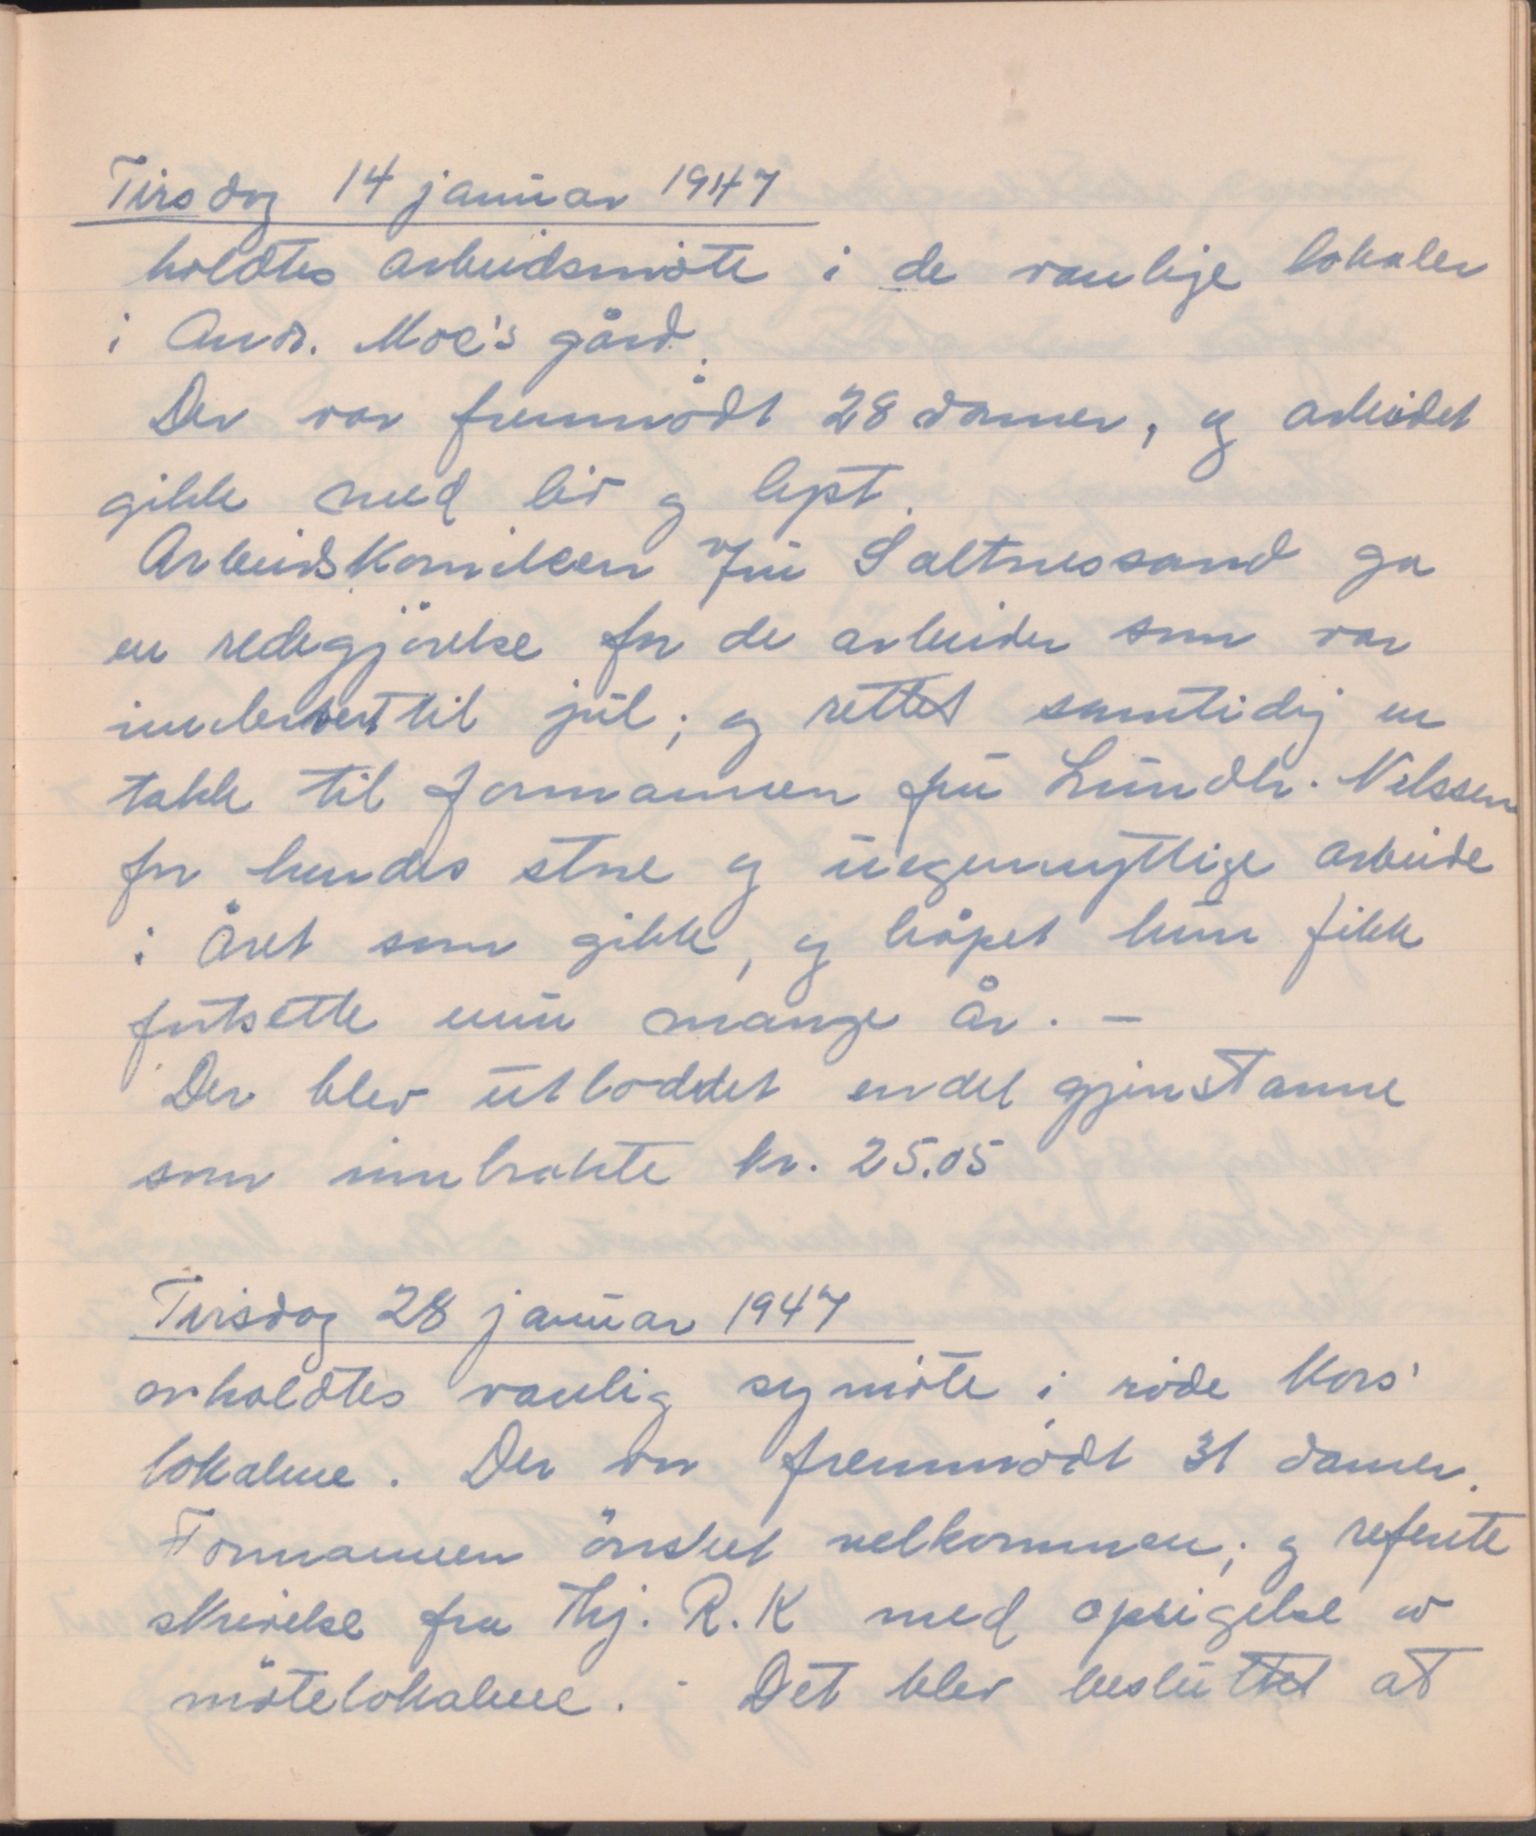 Tirsdag 14 januar 1947
holdtes arbeidsmöte i de vanlige lokaler
i Andr. Moe's gård.
Der var fremmödt 28 damer, og arbeidet
gikk med liv og lyst.
Arbeidskomiteen Fru Saltnessand ga
en redegjörelse for de arbeider som var
innlevert til jul; og rettet samtidig en
takk til formannen fru Lundh. Nilssen
for hendes store og uegennyttige arbeide
i året som gikk, og håpet hun fikk
fortsette ennu mange år. —
Der blev utloddet endel gjenstanne
som innbrakte kr. 25.05
Tirsdag 28 januar 1947
avholdtes vanlig symöte i röde Kors'
lokalene. Der var fremmödt 31 damer.
Formannen önsket velkommen; og referte
skrivelse fra Thj. R.K med opsigelse av
mötelokalene. - Det blev besluttet at